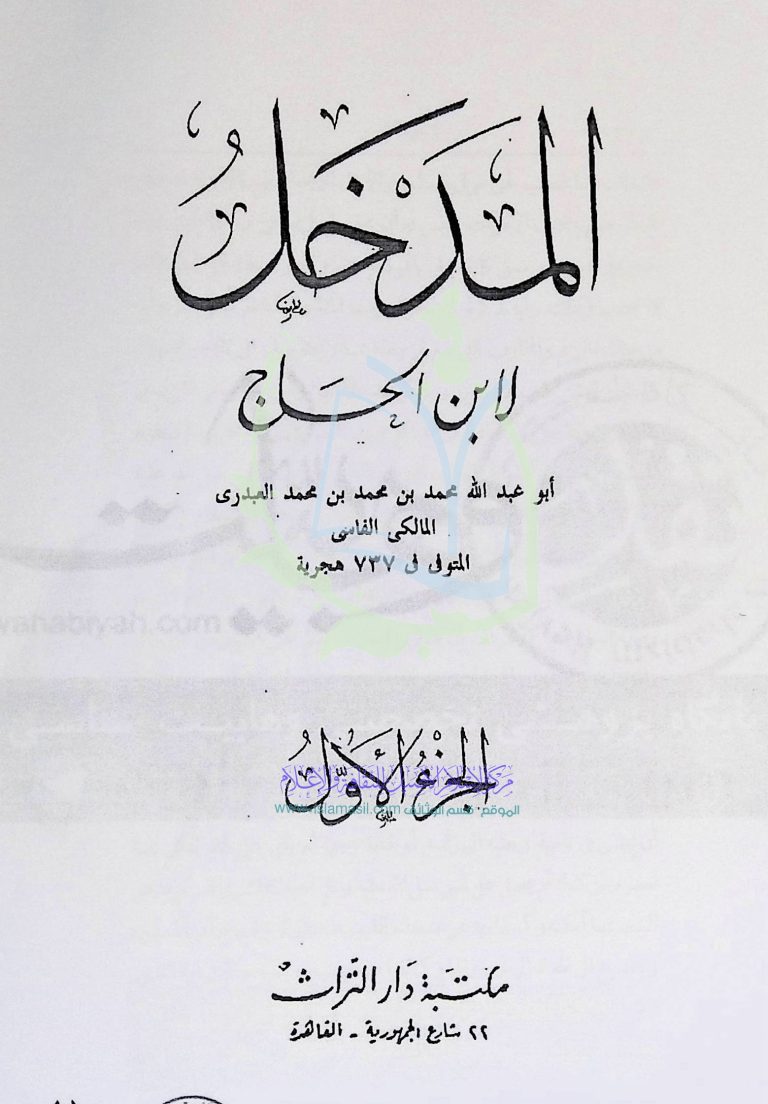 المَدْخَلُ
لابن الحاج
أبو عبد الله محمد بن محمد بن محمد العبدرى
المالكى الفاسى
المتوفى فى ٧٣٧ هجرية
wahabiyah.com
الجُزْءُ الأَوَّلُ
www.islamasil.com الموقع - قسم الوثائق
مكتبة دار التراث
٢٢ شارع الجمهورية - القاهرة